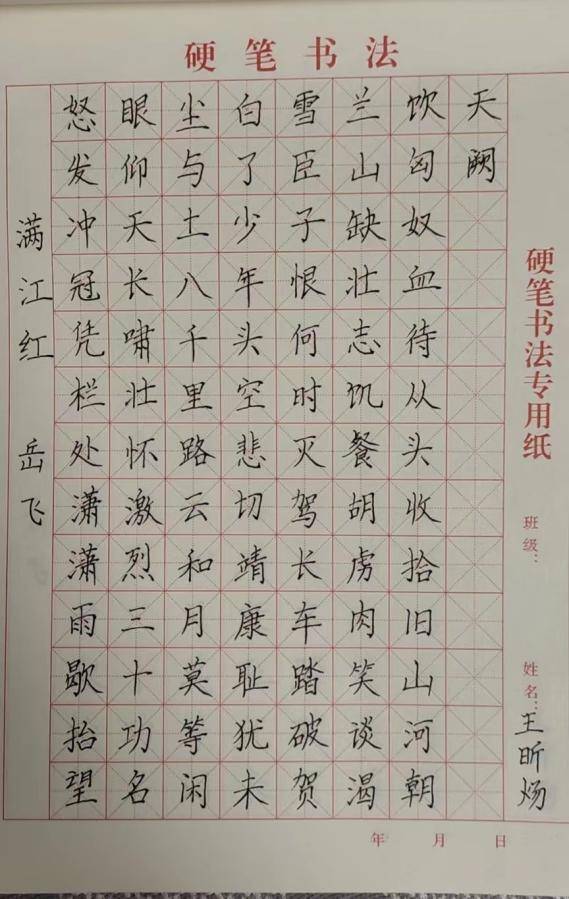 硬笔书法
满江红 岳飞
怒发冲冠凭栏处潇潇雨歇抬望
眼仰天长啸壮怀激烈三十功名
尘与土八千里路云和月莫等闲
白了少年头空悲切靖康耻犹未
雪臣子恨何时灭驾长车踏破贺
兰山缺壮志饥餐胡虏肉笑谈渴
饮匈奴血待从头收拾旧山河朝
天阙
硬笔书法专用纸
班级：
姓名：王昕炀
年 月 日